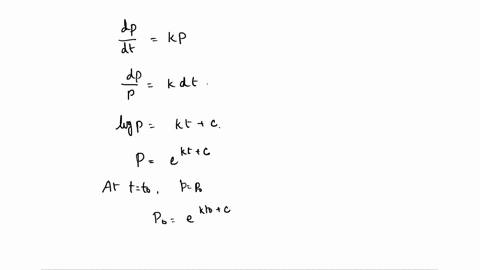 dp/dt = kP
dp/P = k dt.
log P = kt + c.
P = e^{kt + c}
At t=t₀, p=p₀
P₀ = e^{kt₀ + c}